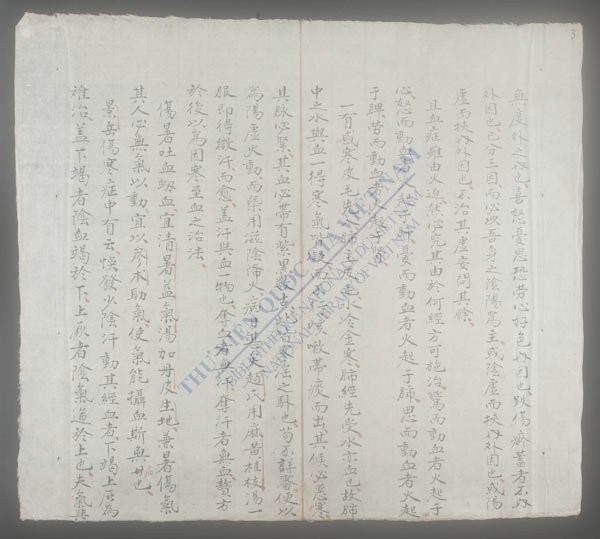 3
無度外之因也喜怒憂思恐勞心好色内因也跌傷瘀蓄者不内
外因也已分三因而必以吾身之陰陽為主或陰虛而挾内外因也或陽
虛而挾内外因也不治其虛安問其餘
且血症雖由火迫然必究其由於何經方可施治驚而動血者火起于
心怒而動血者火起于肝憂而動血者火起于肺思而動血者火起
于脾勞而動血者火起于腎
一有感寒皮毛
中之水與血一得寒氣皆凝而咳嗽帶痰而出其候必惡寒
其脉必緊其血必帶有紫黑數點此皆寒淫之
為陽虛火動而槩用滋陰降火 用麻黄桂枝湯一
服即得微汗而愈盖汗與血一物也奪血者無汗奪汗者無血贅方
於後以為因寒至血之治法
傷暑吐血衂血宜清暑益氣湯加丹皮生地兼暑傷氣
其人必無氣以動宜以參朮助氣使氣能攝血斯無 也
景岳傷寒症中有云悞發少陰汗動其經血者下竭上厥為
難治盖下竭者陰血竭於下上厥者陰氣逆於上也夫氣與
THƯ VIỆN QUỐC GIA VIỆT NAM
BIBLIOTHEQUE NATIONALE DU VIETNAM
NATIONAL LIBRARY OF VIETNAM